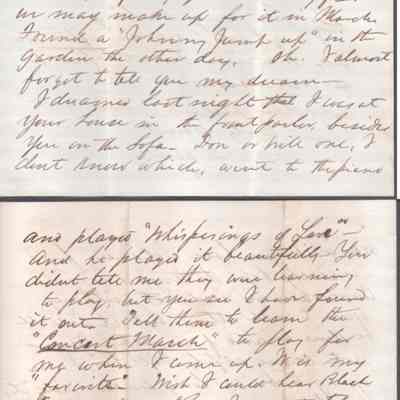 in may make up for it in March.
I found a "Johnny Jump up" in the
Garden the other day. Oh. I almost
forgot to tell you my dream —
I dreamed last night that I was at
your house in the front parlor, besides
you on the Sofa. Don or Will one, I
dont know which, went to the piano
and played "Whisperings of Love" —
And he played it beautifully. You
didnt tell me they were learning
to play, but you see I have found
it out. Tell them to learn the
"Concert March" to play for
me when I come up. It is my
"favorite". Wish I could hear Black